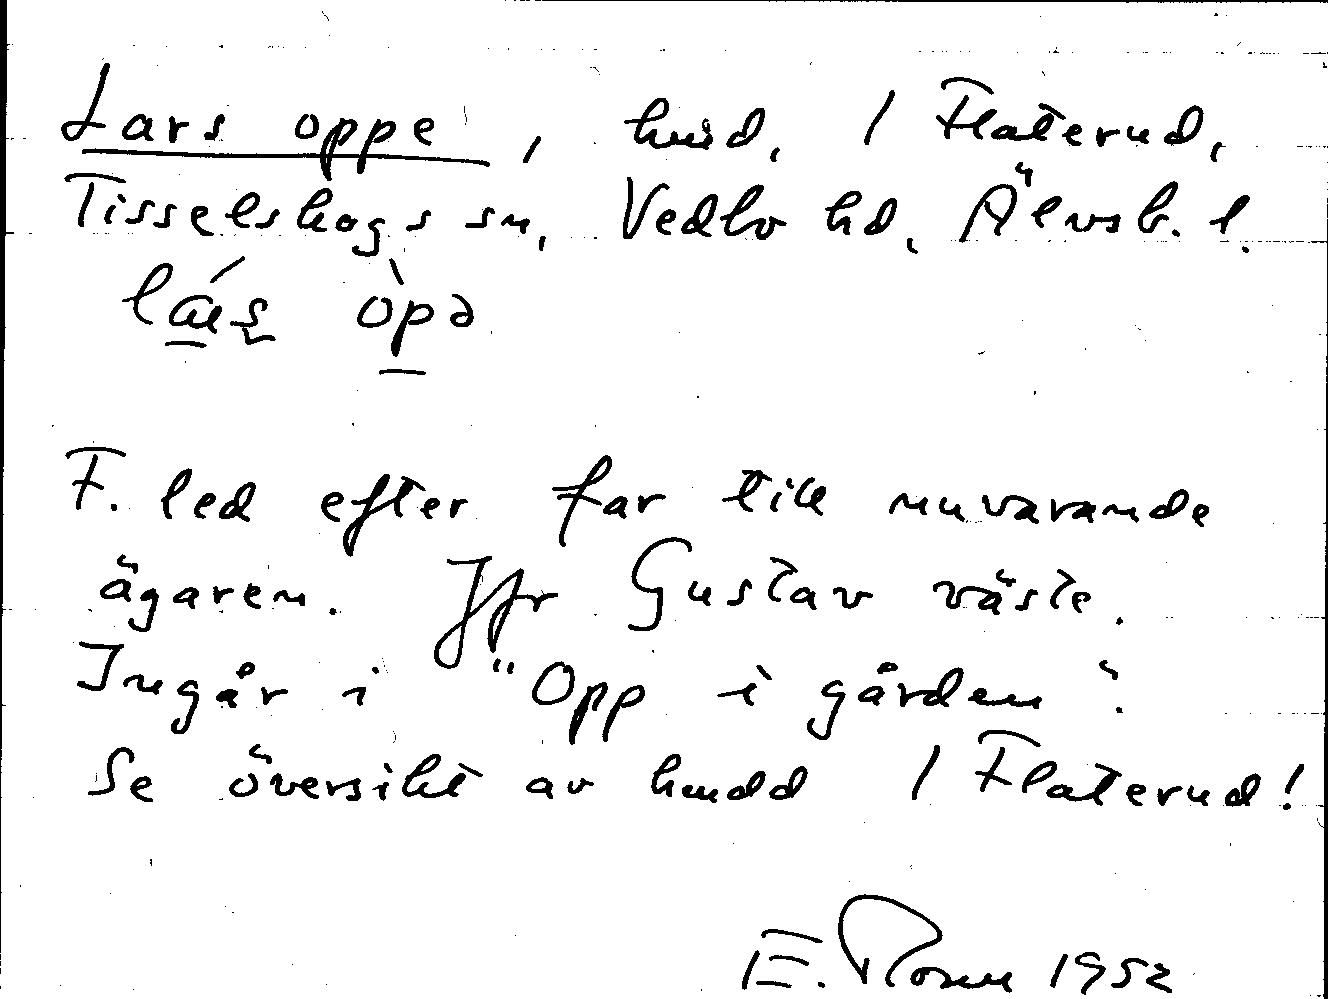 Lars oppe, hmsd, 1 Flaterud,
Tisselskogs sn, Vedbo hd, Älvsb. l.
òpə
F. led efter far till nuvarande
ägaren. Jfr Gustav väste.
Ingår i "Opp i gården".
Se översikt av hmdd 1 Flaterud!
E. Rosen 1952